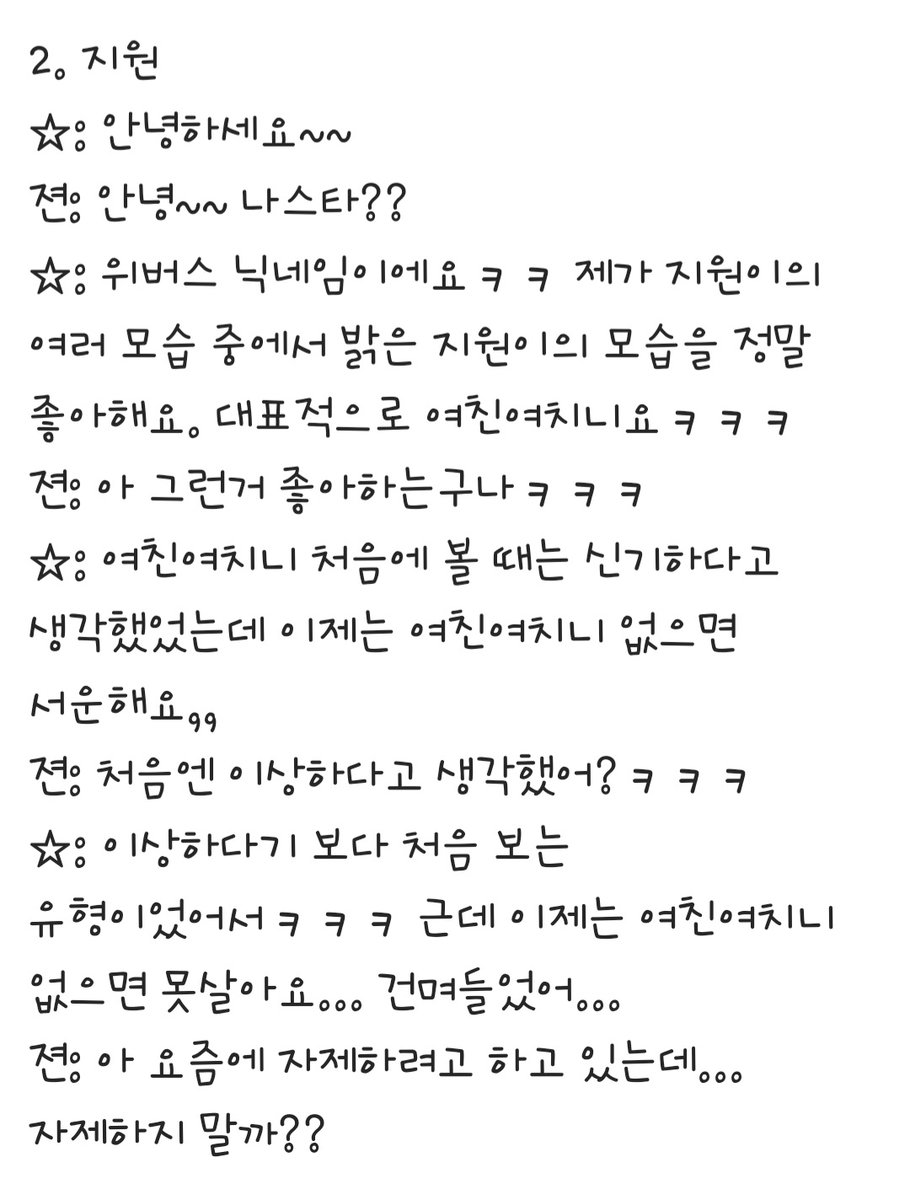 2. 지원
☆: 안녕하세요~~
젼: 안녕~~ 나스타??
☆: 위버스 닉네임이에요ㅋㅋ 제가 지원이의
여러 모습 중에서 밝은 지원이의 모습을 정말
좋아해요. 대표적으로 여친여치니요ㅋㅋㅋ
젼: 아 그런거 좋아하는구나ㅋㅋㅋ
☆: 여친여치니 처음에 볼 때는 신기하다고
생각했었는데 이제는 여친여치니 없으면
서운해요,,
젼: 처음엔 이상하다고 생각했어?ㅋㅋㅋ
☆: 이상하다기 보다 처음 보는
유형이었어서ㅋㅋㅋ 근데 이제는 여친여치니
없으면 못살아요... 건며들었어...
젼: 아 요즘에 자제하려고 하고 있는데...
자제하지 말까??